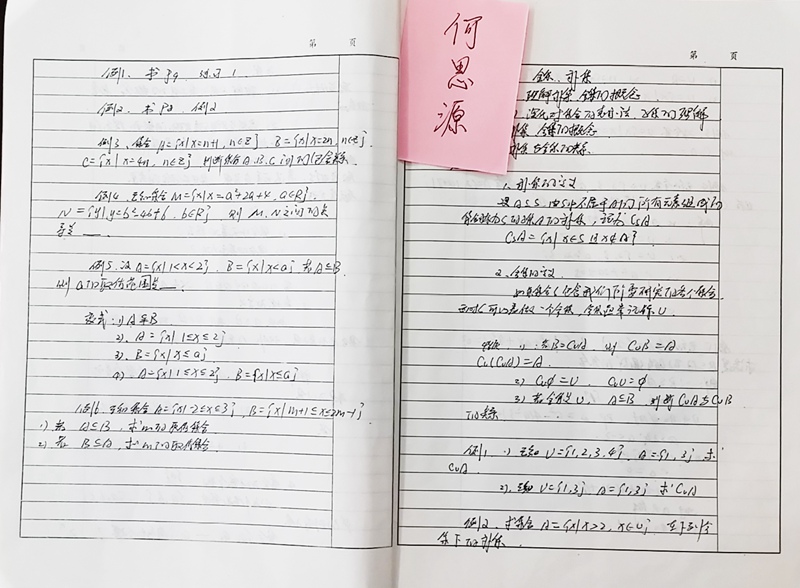 第 页
例1. 书P9 练习1
例2. 书P8 例2
例3. 集合 A={x|x=n+1, n∈Z} B={x|x=2n, n∈Z},
C={x|x=4n, n∈Z} 判断集合A.B.C间的包含关系
例4. 已知集合M={x|x=a²+2a+4, a∈R},
N={y|y=b²-4b+6, b∈R} 则 M.N之间的关
系是
例5. 设A={x|1<x<2}, B={x|x<a}, 若A⊆B.
则a的取值范围是
变式: 1) A⫋B
2). A={x|1≤x≤2}
3). B={x|x≤a}
4). A={x|1≤x≤2}, B={x|x≤a}
例6. 已知集合A={x|-2≤x≤3}, B={x|m+1≤x≤2m-1}
1) 若 A⊆B, 求m的取值集合
2) 若 B⊆A, 求m的取值集合
何思源
第 页
全集、补集
理解补集、全集的概念
补集、全集的概念
补集与全集的关系
1. 补集的定义
设A⊆S. 由S中不属于A的所有元素组成的
集合称为S的子集A的补集, 记为CsA
CsA={x|x∈S 且 x∉A}
2. 全集的定义
如果集合S包含我们所要研究的各个集合
这时S可以看做一个全集, 全集通常记作U
性质 1): 若B=CuA, 则 CuB=A
Cu(CuA)=A.
2) Cuφ=U. CuU=φ
3) 若全集U, A⊆B, 判断CuA与CuB
的关系
例1. 1) 已知U={1,2,3,4}, A={1,3} 求
CuA
2). 已知U={1,3} A={1,3} 求CuA
例2. 求集合A={x|x>2, x∈U} 在下列条
件下的补集